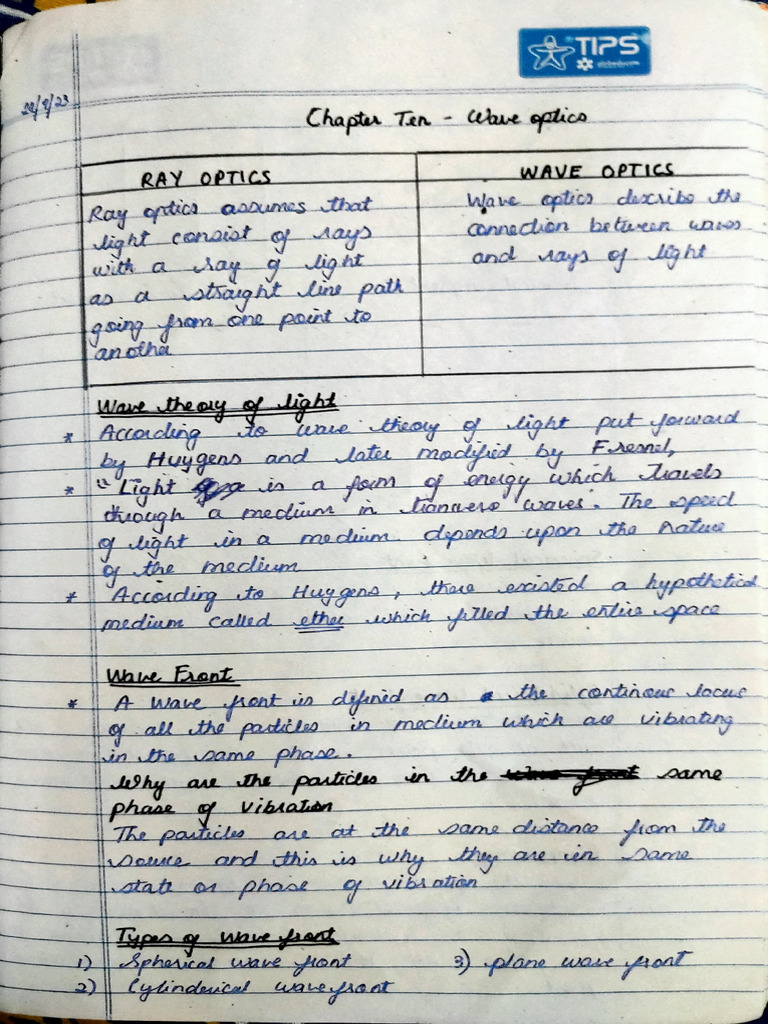 TIPS
22/9/23
Chapter Ten - Wave optics
RAY OPTICS
Ray optics assumes that
light consist of rays
with a ray of light
as a straight line path
going from one point to
another
WAVE OPTICS
Wave optics describe the
connection between waves
and rays of light
Wave theory of light
* According to wave theory of light put forward
by Huygens and later modified by Fresnel,
* "Light is a form of energy which travels
through a medium in transverse waves. The speed
of light in a medium depends upon the nature
of the medium
* According to Huygens, there existed a hypothetical
medium called ether which filled the entire space
Wave Front
* A wave front is defined as the continous locus
of all the particles in medium which are vibrating
in the same phase.
Why are the particles in the same
phase of vibration
The particles are at the same distance from the
source and this is why they are in same
state or phase of vibration
Types of wave front
1) Spherical wave front
2) Cylinderical wavefront
3) plane wave front